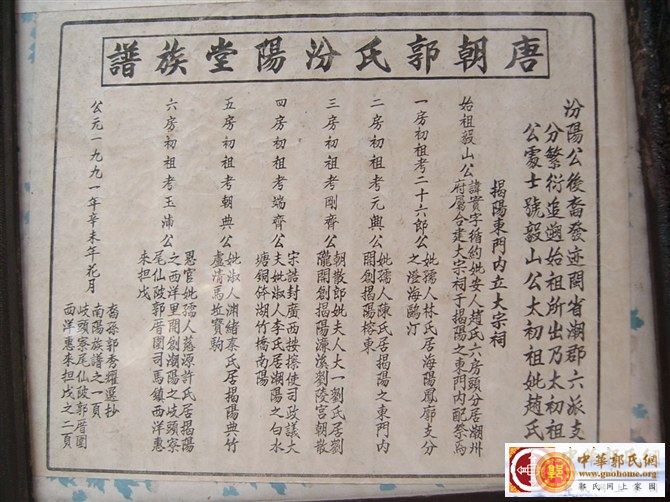 唐朝郭氏汾陽堂族譜
汾陽公後裔發迹閩省潮郡六派支
分繁衍追遡始祖所出乃太初祖
公處士號毅山公太初祖妣趙氏
揭陽東門内立大宗祠
始祖毅山公諱實字循約妣安人趙氏六房頭分居潮州
府屬合建大宗祠于揭陽之東門内配祭焉
一房初祖考二十六郎公妣孺人林氏居海陽鳳廓支分
之澄海鷗汀
二房初祖考元興公妣孺人陳氏居揭陽之東門内
開創揭陽榕東
三房初祖考剛齊公朝散郎妣夫人大一劉氏居劉
隴開創揭陽濠溪劉陵宫朝散
四房初祖考端齊公宋誥封廣西按擦使司政議大
夫妣淑人李氏居潮陽之白水
塘銅砵湖竹橋南陽
五房初祖考朝典公妣淑人渊緒秦氏居揭陽典竹
盧清馬坎寶駒
六房初祖考玉浦公恩官妣孺人慈源許氏居揭陽
之西洋里開創潮陽之岐頭寮
尾仙陂郭厝圍司馬鎮西洋惠
来担戊
公元一九九一年辛未年花月
裔孫郭秀耀選抄
南陽族譜之一頁
岐頭寮尾仙陂郭厝圍
西洋惠来担戊之二頁
中華郭氏網
www.guohome.org
郭氏网上家園